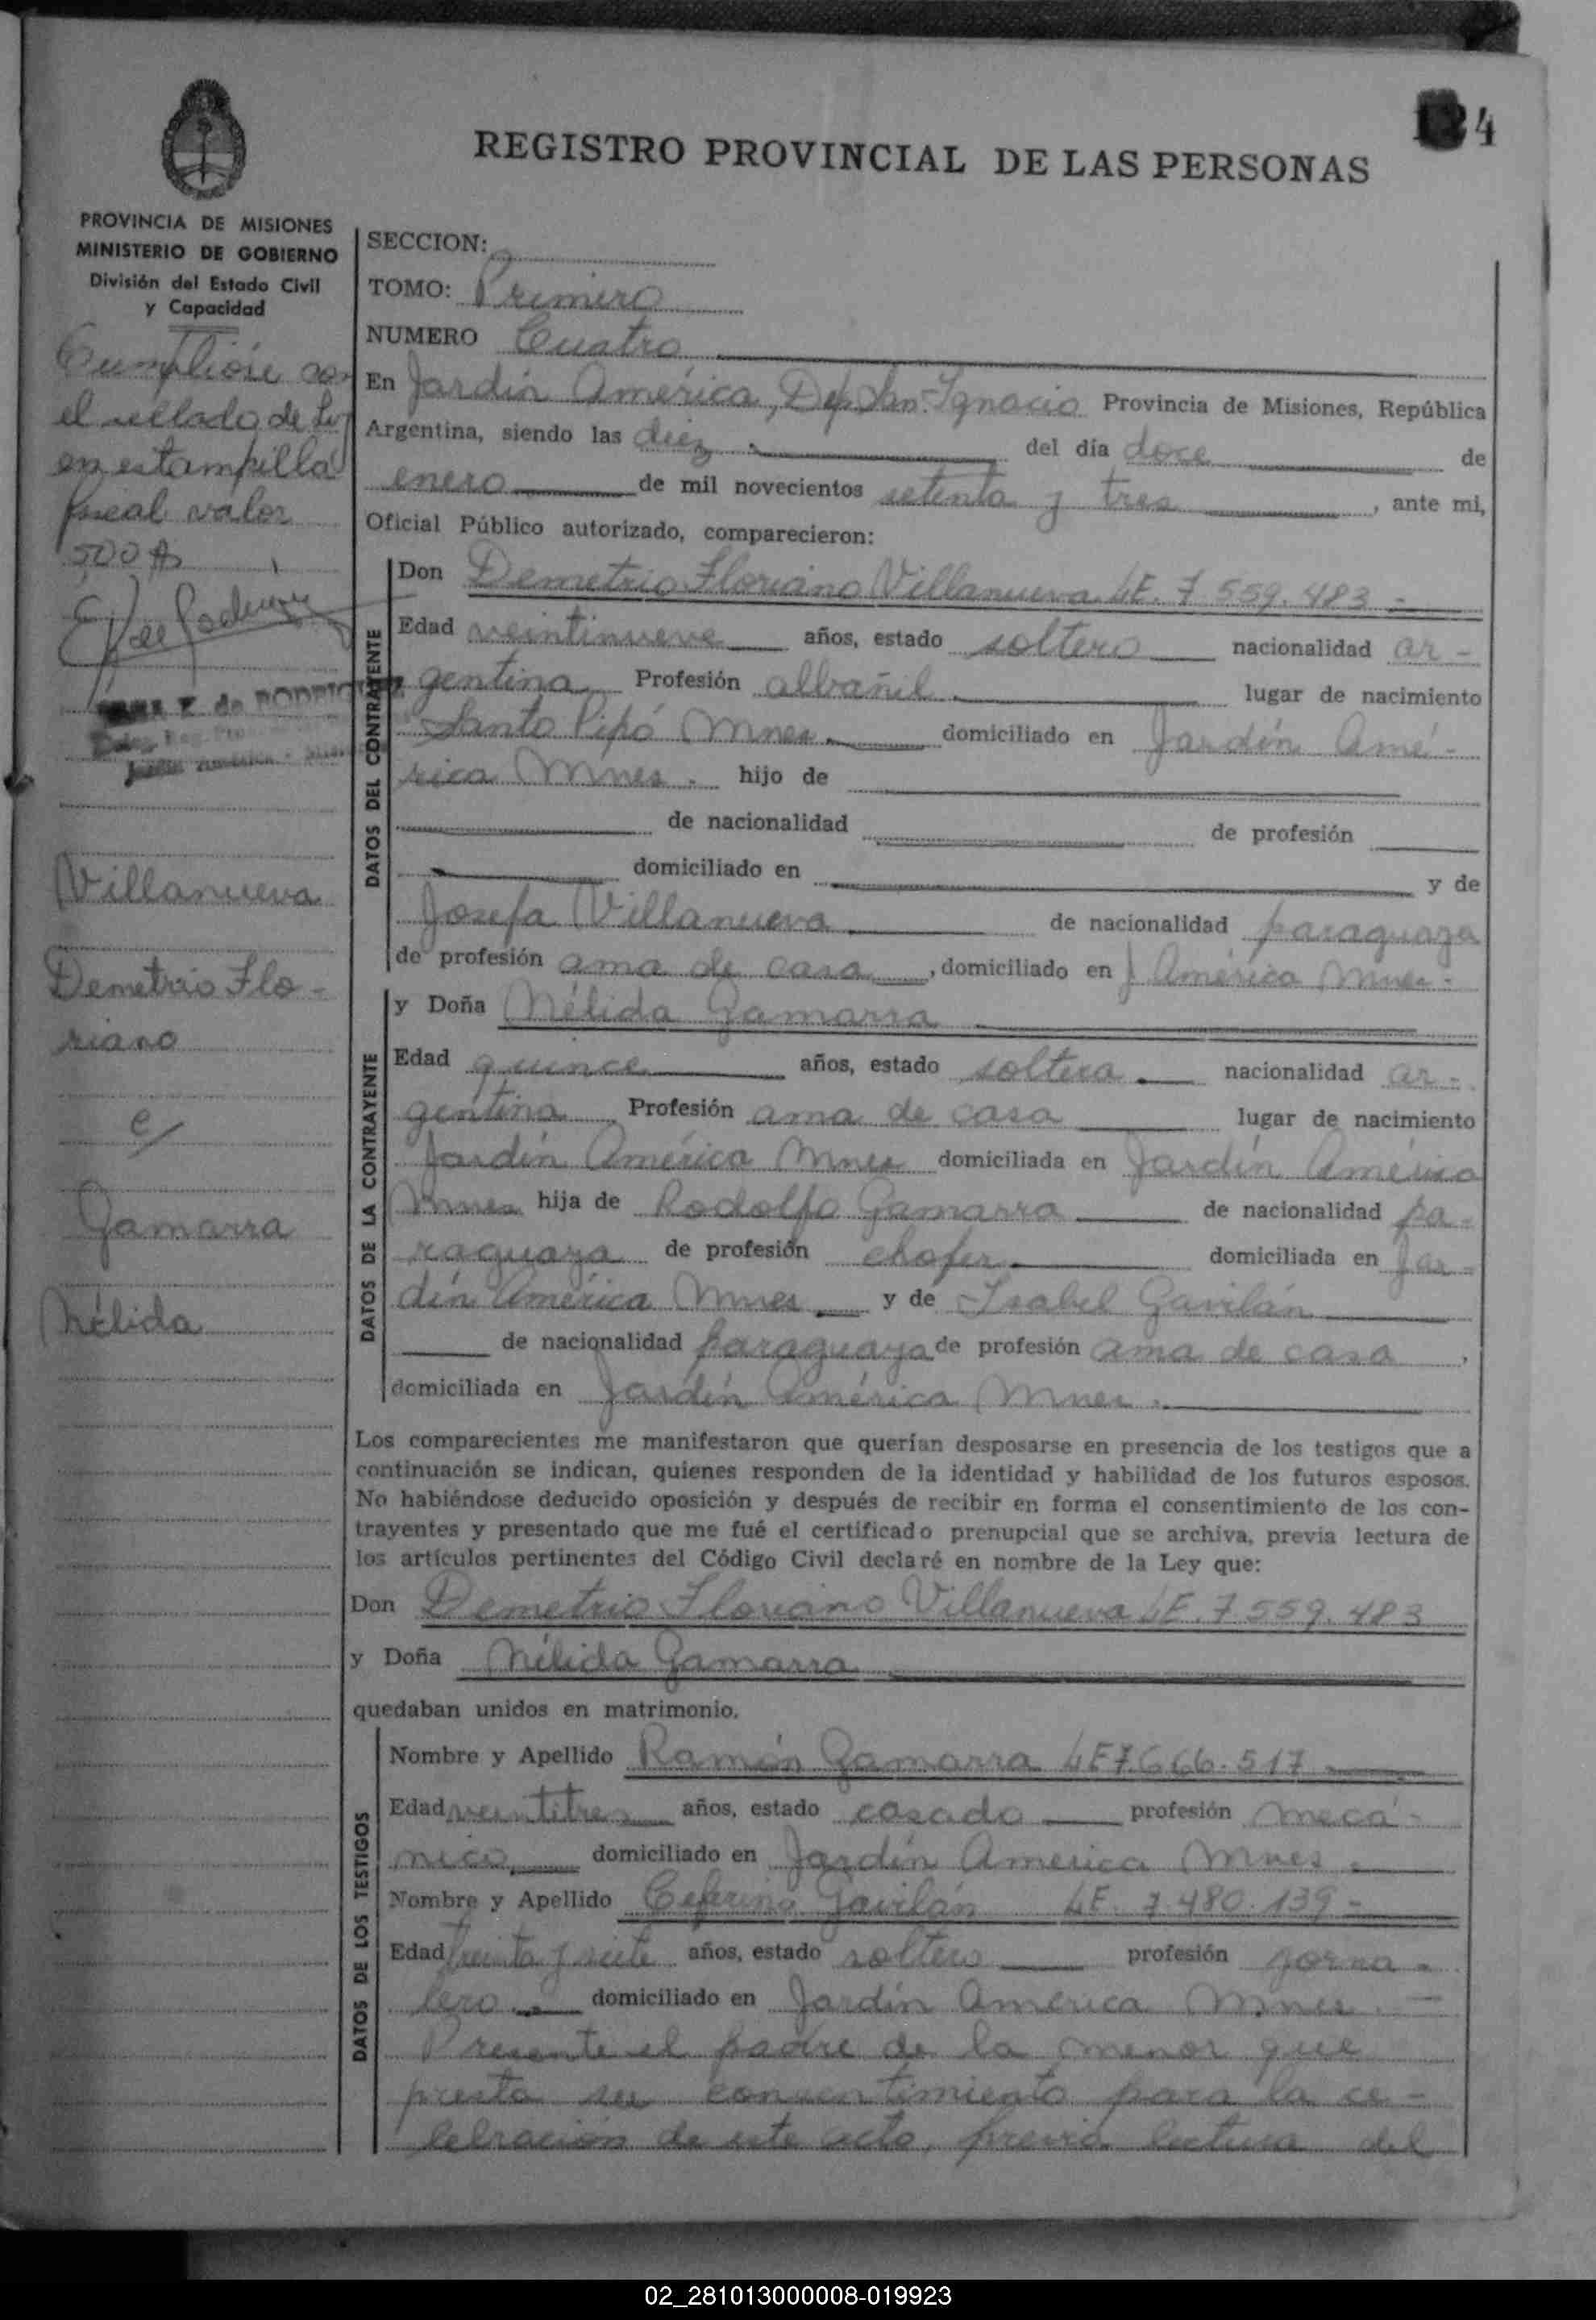 4
REGISTRO PROVINCIAL DE LAS PERSONAS
PROVINCIA DE MISIONES
MINISTERIO DE GOBIERNO
División del Estado Civil
y Capacidad
Cumplióse con
el sellado de Ley
en estampilla
fiscal valor
500 $
de RODRIGUEZ
Villanueva
Demetrio Flo-
riano
c/
Gamarra
Nélida
SECCION:
TOMO: Primero
NUMERO Cuatro
En Jardín América, Dep. San Ignacio Provincia de Misiones, República
Argentina, siendo las diez del día doce de
enero de mil novecientos setenta y tres, ante mi,
Oficial Público autorizado, comparecieron:
DATOS DEL CONTRAYENTE
Don Demetrio Floriano Villanueva LE. 7.559.483 -
Edad veintinueve años, estado soltero nacionalidad ar-
gentina Profesión albañil lugar de nacimiento
Santo Pipó Mnes. domiciliado en Jardín Amé-
rica Mnes. hijo de
de nacionalidad de profesión
domiciliado en y de
Josefa Villanueva de nacionalidad paraguaya
de profesión ama de casa, domiciliado en J América Mnes.
DATOS DE LA CONTRAYENTE
y Doña Nélida Gamarra
Edad quince años, estado soltera nacionalidad ar-
gentina Profesión ama de casa lugar de nacimiento
Jardín América Mnes domiciliada en Jardín América
Mnes hija de Rodolfo Gamarra de nacionalidad pa-
raguaya de profesión chofer domiciliada en Jar-
dín América Mnes y de Isabel Gavilán
de nacionalidad paraguaya de profesión ama de casa,
domiciliada en Jardín América Mnes.
Los comparecientes me manifestaron que querían desposarse en presencia de los testigos que a
continuación se indican, quienes responden de la identidad y habilidad de los futuros esposos.
No habiéndose deducido oposición y después de recibir en forma el consentimiento de los con-
trayentes y presentado que me fué el certificado prenupcial que se archiva, previa lectura de
los artículos pertinentes del Código Civil declaré en nombre de la Ley que:
Don Demetrio Floriano Villanueva LE. 7.559.483
y Doña Nélida Gamarra
quedaban unidos en matrimonio.
DATOS DE LOS TESTIGOS
Nombre y Apellido Ramón Gamarra LE 7.666.517
Edad veintitres años, estado casado profesión mecá-
nico domiciliado en Jardín América Mnes.
Nombre y Apellido Ceferino Gavilán LE. 7.480.139 -
Edad treinta y siete años, estado soltero profesión jorna-
lero domiciliado en Jardín América Mnes. -
Presente el padre de la menor que
presta su consentimiento para la ce-
lebración de este acto, previa lectura del
02_281013000008-019923